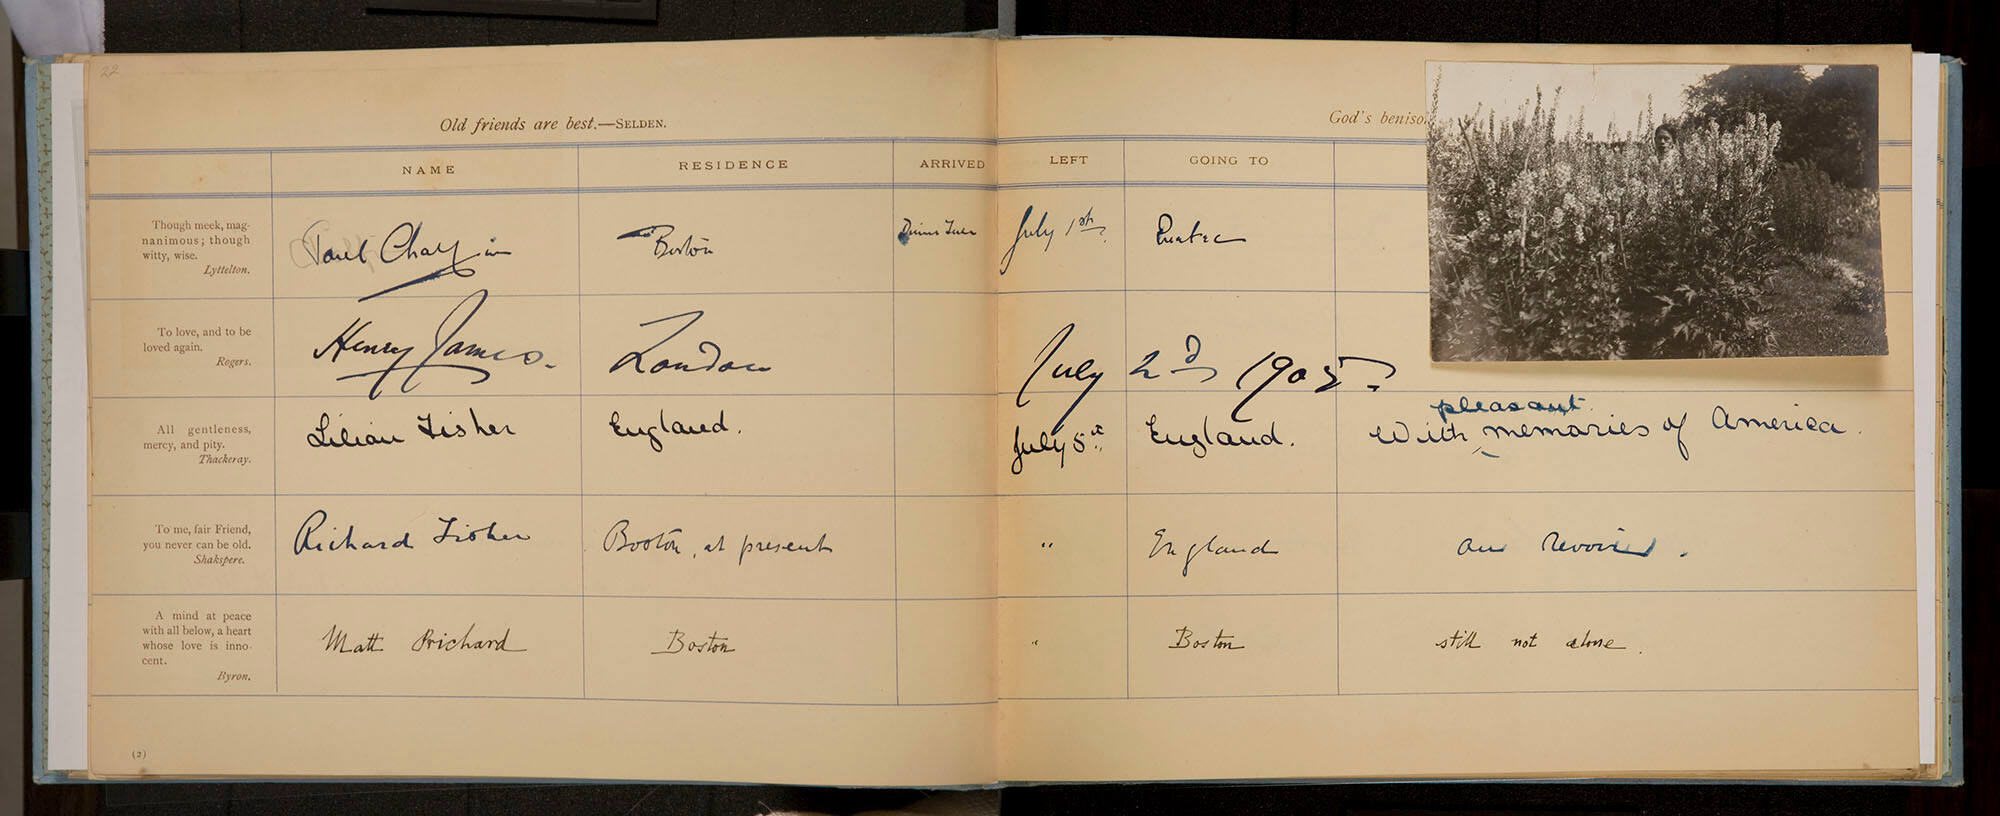 22
Old friends are best.—SELDEN.
God's beniso
NAME RESIDENCE ARRIVED LEFT GOING TO
Though meek, mag-
nanimous; though
witty, wise.
Lyttelton.
Paul Chalfin Boston July 1st.
To love, and to be
loved again.
Rogers.
Henry James. London July 2d 1905.
All gentleness,
mercy, and pity.
Thackeray.
Lilian Fisher England. July 5th England. With pleasant memories of America.
To me, fair Friend,
you never can be old.
Shakspere.
Richard Fisher Boston, at present " England au revoir.
A mind at peace
with all below, a heart
whose love is inno-
cent.
Byron.
Matt Prichard Boston " Boston still not alone.
(2)